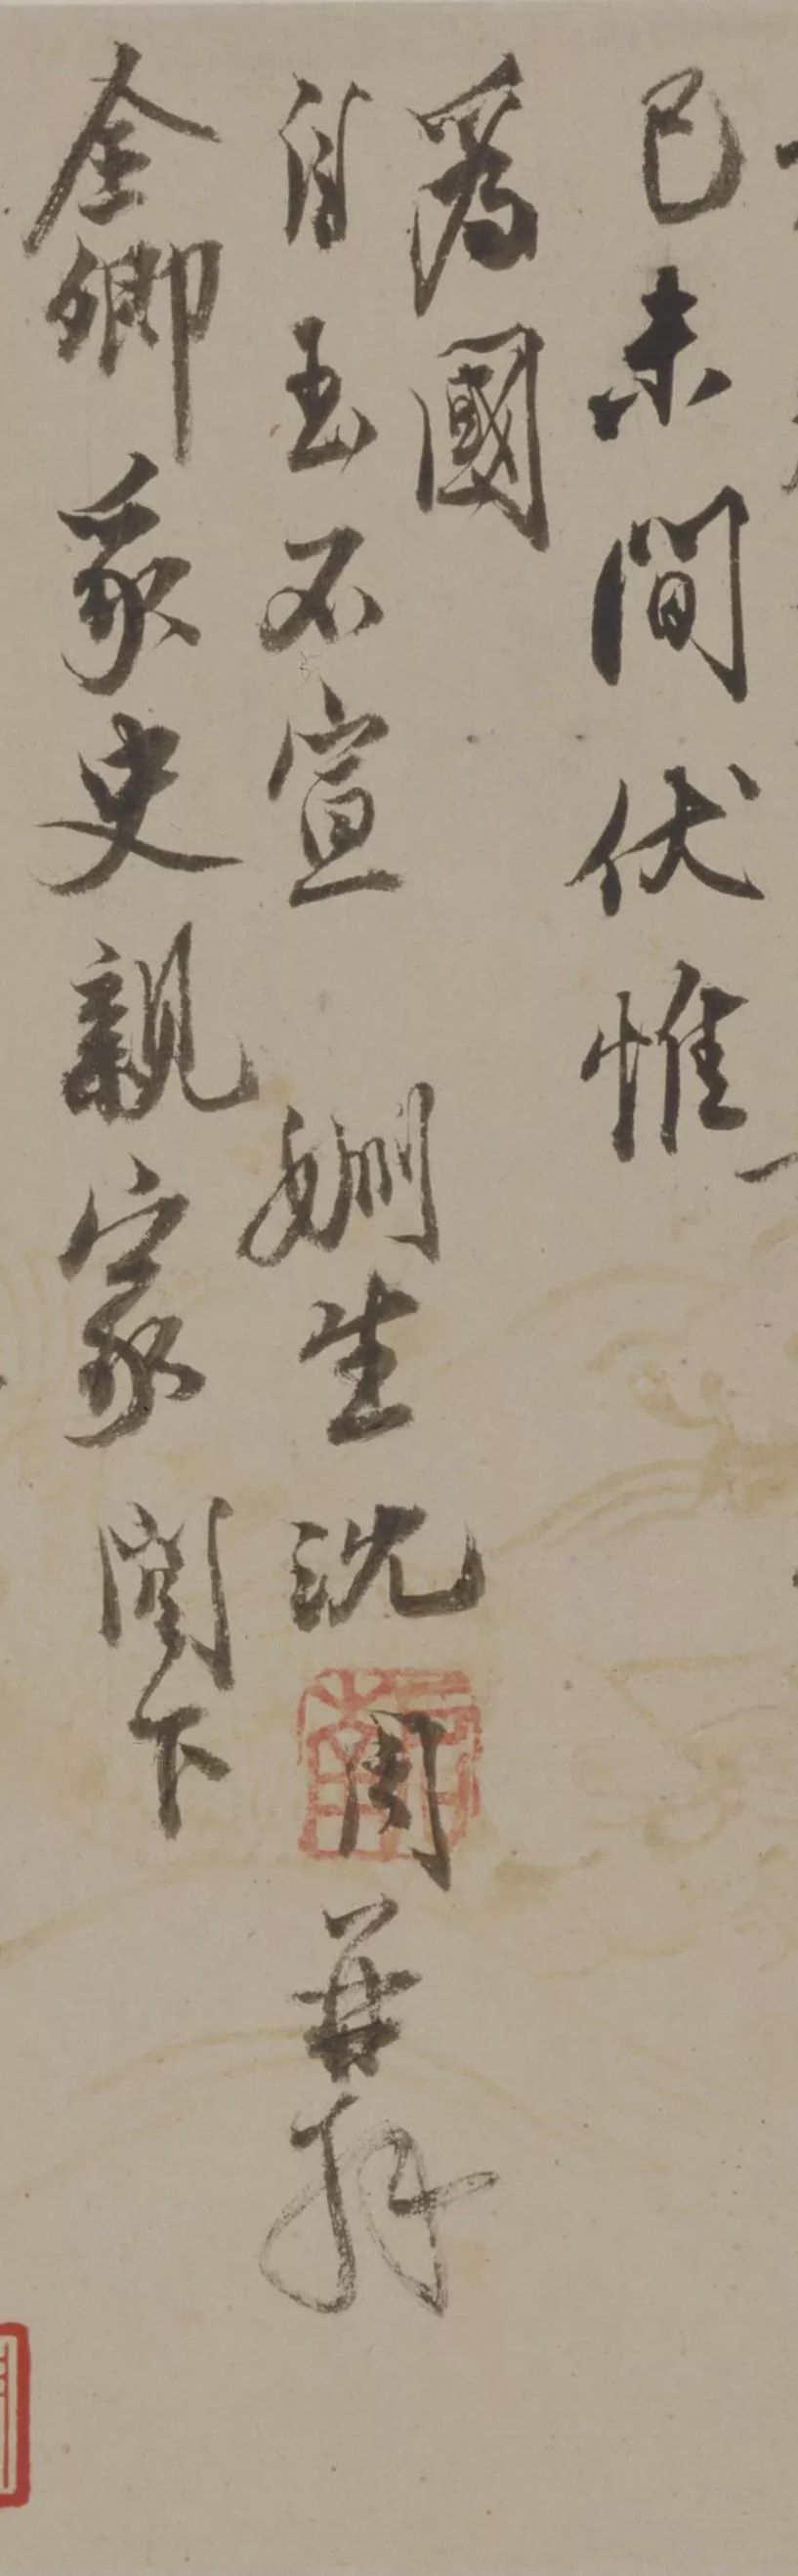 已未間伏惟
爲國
自玉不宣 婣生沈周再拜
全卿豸史親家閣下